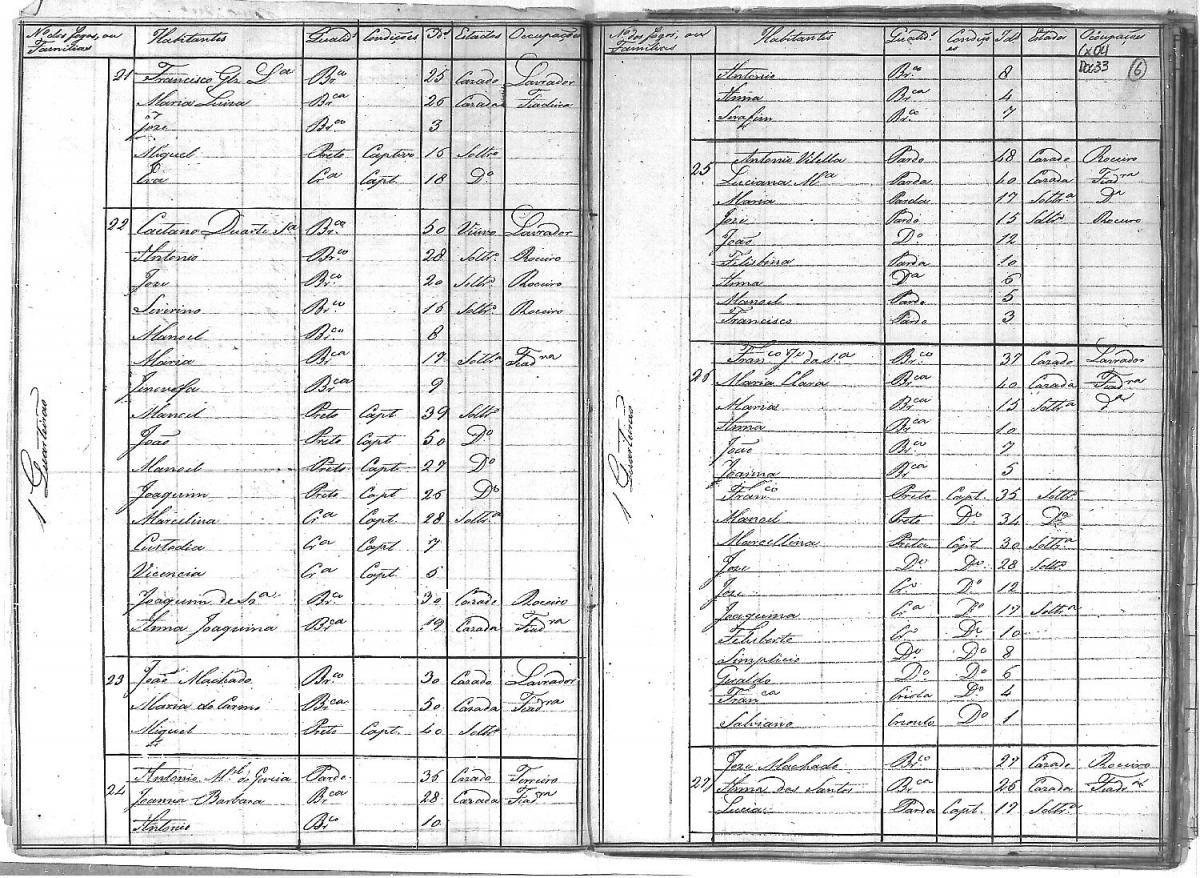 Nos. dos fogos, ou Familias Habitantes Qualide. Condições Ides. Estados Occupações
1 Quarteirão
21 Francisco Glz La Brco 25 Cazado Lavrador
Maria Luiza Brca 26 Cazada Fiadeira
Joze Brco 3
Miguel Preto Captivo 16 Soltro
Eva Cra Capt. 18 Do
22 Caetano Duarte Sa Brco 50 Viuvo Lavrador
Antonio Brco 28 Soltro Roceiro
Joze Brco 20 Soltro Roceiro
Siverino Brco 16 Soltro Roceiro
Manoel Brco 8
Maria Brca 17 Soltra Fiadra
Jenovefa Brca 9
Manoel Preto Capt 39 Soltro
João Preto Capt 50 Do
Manoel Preto Capt 27 Do
Joaquim Preto Capt 26 Do
Marcelina Cra Capt. 28 Soltra
Custodia Cra Capt 7
Vicencia Cra Capt. 5
Joaquim de Sza Brco 30 Cazado Roceiro
Anna Joaquina Brca 19 Cazada Fiadra
23 João Machado Brco 30 Cazado Lavrador
Maria do Carmo Brca 50 Cazada Fiadra
Miguel Preto Capt. 40 Soltro
24 Antonio Mel de Pardo 36 Cazado Ferreiro
Joanna Barbara Brca 28 Cazada Fiadra
Antonio Brco 10
Nos. dos fogos, ou Familias Habitantes Qualide. Condições Ides Estados Occupações
Cx04
Doc33 (6)
1 Quarteirão
Antonio Brco 8
Anna Brca 4
Serafim Brco 7
25 Antonio Vilella Pardo 48 Cazado Roceiro
Luciana Ma Parda 40 Cazada Fiadra
Maria Parda 17 Soltra Da
Joze Pardo 15 Soltro Roceiro
João Do 12
Felisbina Parda 10
Anna Da 6
Manoel Pardo 5
Francisco Pardo 3
26 Franco Je da Sa Brco 37 Cazado Lavrador
Maria Clara Brca 40 Cazada Fiadra
Maria Brca 15 Soltra Da
Anna Brca 10
João Brco 7
Joanna Brca 5
Franco Preto Capt. 35 Soltro
Manoel Preto Do 34 Do
Marcellina Preta Capt 30 Soltra
Joze Do Do 28 Soltro
Joze Cro Do 12
Joaquina Cra Do 17 Soltra
Feliberto Cro Do 10
Simplicio Do Do 8
Giraldo Do Do 6
Franca Criola Do 4
Salviano Creoulo Do 1
27 Joze Machado Brco 27 Cazado Roceiro
Anna dos Santos Brca 26 Cazada Fiadra
Lucia Parda Capt. 17 Soltra